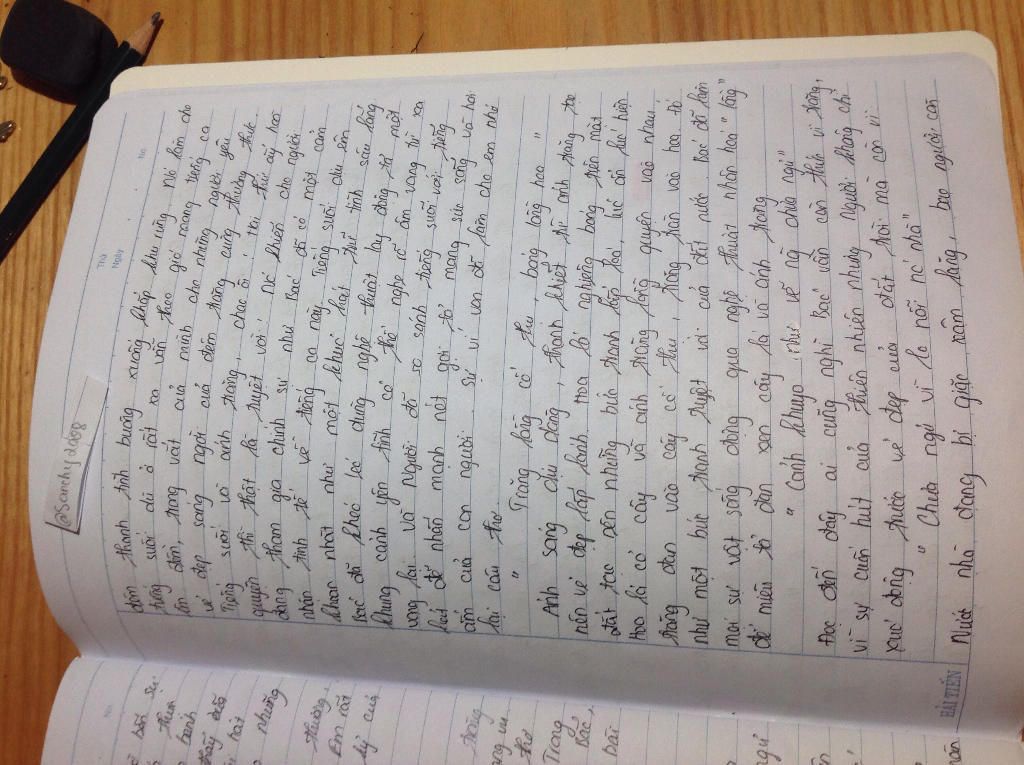 @Sanchy2008
Thứ
Ngày
No.
đêm thanh tĩnh buông xuống khắp khu rừng. Nó làm cho
tiếng suối dù ở rất xa vẫn theo gió mang tiếng ca
êm đềm, trong vắt của mình cho những người yêu
vẻ đẹp sáng ngời của đêm trăng cùng thưởng thức.
Tiếng suối và ánh trăng, chao ôi! Hai thứ ấy hòa
quyện thì thật là tuyệt vời! Nó khiến cho người
đang tham gia chính sự như Bác đã có một cảm
nhận tinh tế về tiếng ca này. Tiếng suối dịu êm
khoan nhặt như một khúc hát trữ tình sâu lắng
Bác đã khéo léo dùng nghệ thuật lấy động tả một
khung cảnh yên tĩnh có thể nghe rõ âm vang từ xa
vọng lại và Người đã so sánh tiếng suối với tiếng
hát để nhấn mạnh nét gợi tả mang sức sống và hơi
ấm của con người. Sự ví von đã làm cho em nhớ
lại câu thơ:
" Trăng lồng cổ thụ, bóng lồng hoa "
Ánh sáng dịu dàng, thanh khiết từ ánh trăng tạo
nên vẻ đẹp lấp lánh hoa lá nghiêng bóng trên mặt
đất tạo nên những bức tranh lấp loá, lúc ẩn lúc hiện
Hoa lá cỏ cây và ánh trăng lồng quyện vào nhau,
trăng đan vào cây cổ thụ, trăng tràn vào hoa lá
như một bức tranh tuyệt vời của đất nước. Bác đã biến
mọi sự vật sống động qua nghệ thuật nhân hoá " lồng "
để miêu tả đan xen cây lá và ánh trăng.
" Cảnh khuya như vẽ người chưa ngủ "
Đọc đến đây ai cũng nghĩ Bác vẫn còn thức vì trăng,
vì sự cuốn hút của thiên nhiên nhưng Người không chỉ
xúc động trước vẻ đẹp của đất trời mà còn vì:
" Chưa ngủ vì lo nỗi nước nhà "
Nước nhà đang bị giặc xâm lăng, bao người con
HẢI TIẾN